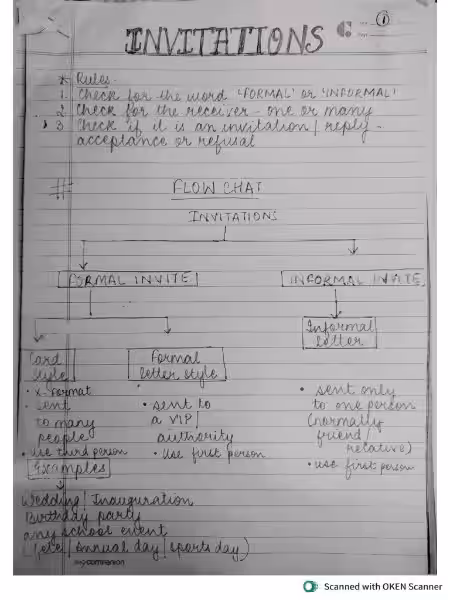 ①
INVITATIONS
* Rules-
1. Check for the word 'FORMAL' or 'INFORMAL'
2. Check for the receiver - one or many
3. Check if it is an invitation / reply -
acceptance or refusal
# FLOW CHAT
INVITATIONS
FORMAL INVITE
INFORMAL INVITE
Card style
• X-format
• sent to many people
• use third person
Formal letter style
• sent to a VIP / authority
• Use first person
Informal letter
• sent only to one person (normally friend / relative)
• use first person
Examples
Wedding / Inauguration
Birthday party
any school event
(fete / annual day / sports day)
companion
Scanned with OKEN Scanner